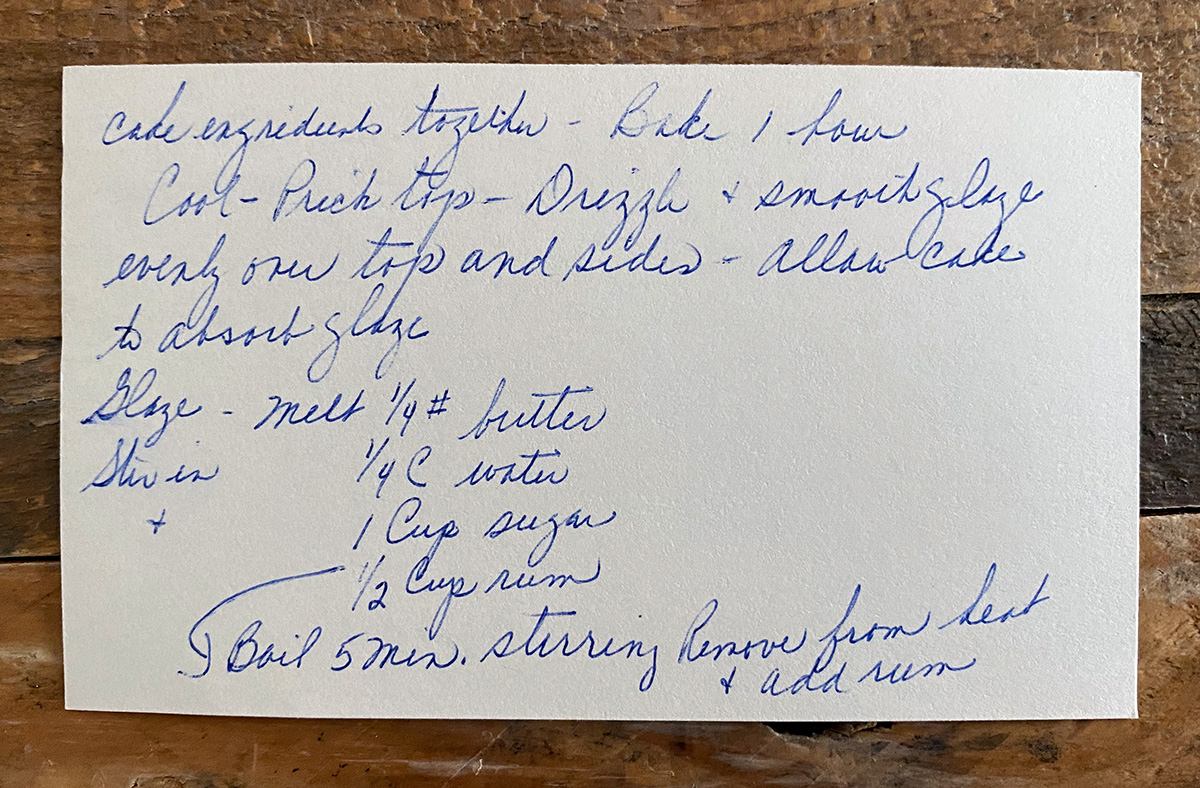 cake engridients together - Bake 1 hour
Cool - Prick top - Drizzle + smooth glaze
evenly over top and sides - allow cake
to absorb glaze
Glaze - melt 1/4 # butter
Stir in 1/4 C water
+ 1 Cup sugar
1/2 Cup rum
Boil 5 min. stirring Remove from heat
+ add rum